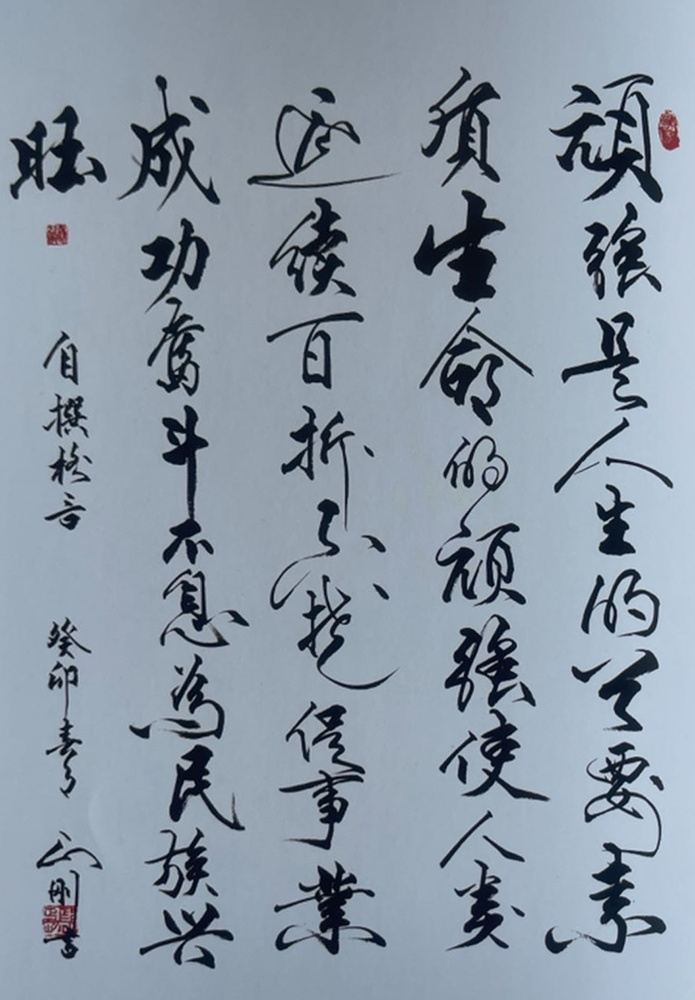 頑強是人生的首要素
质生命的頑強使人类
延續百折不撓促事業
成功奮斗不息為民族兴
旺
自撰格言
癸卯春月 刚书